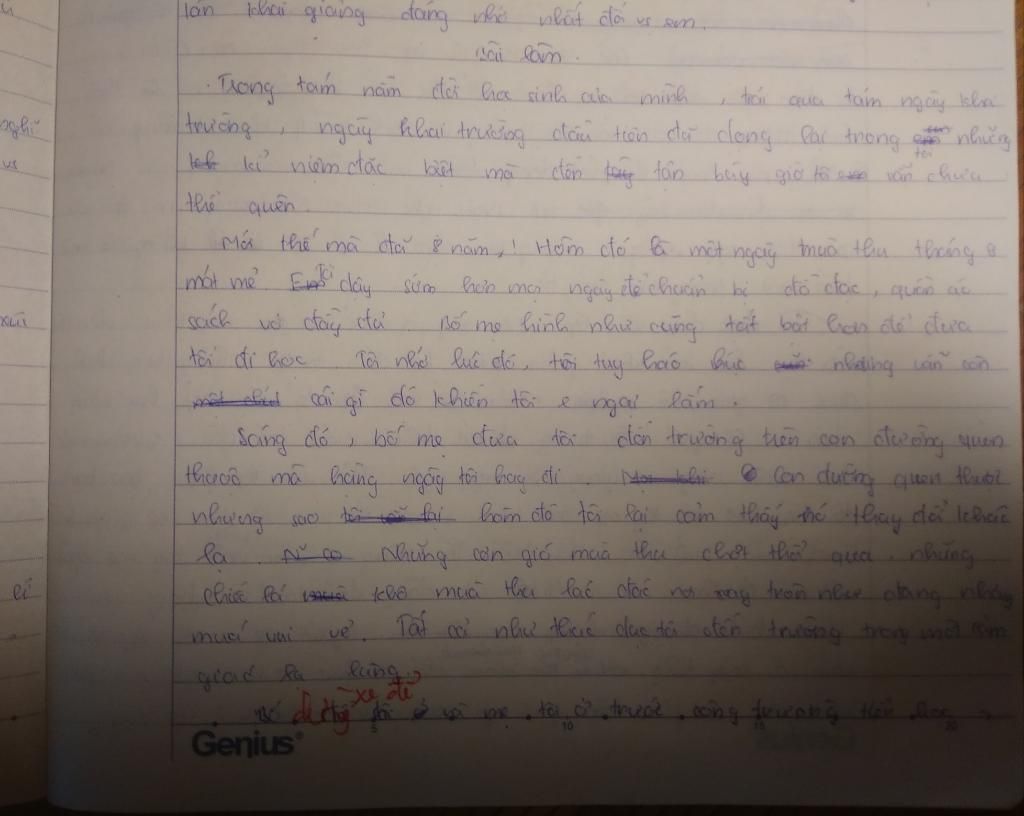 lần khai giảng đáng nhớ nhất đối vs em.
Bài làm.
Trong tám năm đời học sinh của mình, trải qua tám ngày khai
nghĩ trường, ngày khai trường đầu tiên đã đọng lại trong tôi những
vs kỉ niệm đặc biệt mà đến tận bây giờ tôi vẫn chưa
thể quên.
Mới thế mà đã 8 năm,! Hôm đó là một ngày mùa thu tháng 8
mát mẻ. Tôi dậy sớm hơn mọi ngày để chuẩn bị đồ đạc, quần áo
sách vở đầy đủ. Bố mẹ hình như cũng tất bật hơn để đưa
tôi đi học. Tôi nhớ lúc đó, tôi tuy háo hức nhưng vẫn còn
cái gì đó khiến tôi e ngại lắm.
Sáng đó, bố mẹ đưa tôi đến trường trên con đường quen
thuộc mà hàng ngày tôi hay đi. Con đường quen thuộc
nhưng sao hôm đó tôi lại cảm thấy nó thay đổi khác
lạ. Những cơn gió mùa thu chợt thổi qua, những
chiếc lá khô mùa thu lác đác rơi như đang nhảy
múa vui vẻ. Tất cả như thúc dục tôi đến trường trong một cảm
giác lạ lùng.
dừng xe để
Bố tôi và mẹ tôi ở trước cổng trường tiểu học,
5 10 15 20
Genius